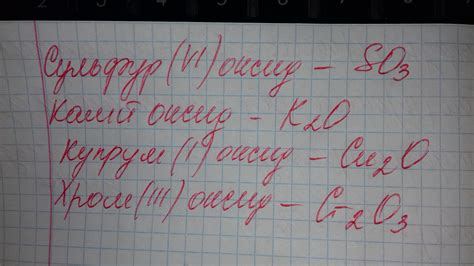 Сульфур (VI) оксид – SO₃
Калій оксид – K₂O
Купрум (I) оксид – Cu₂O
Хром (III) оксид – Cr₂O₃